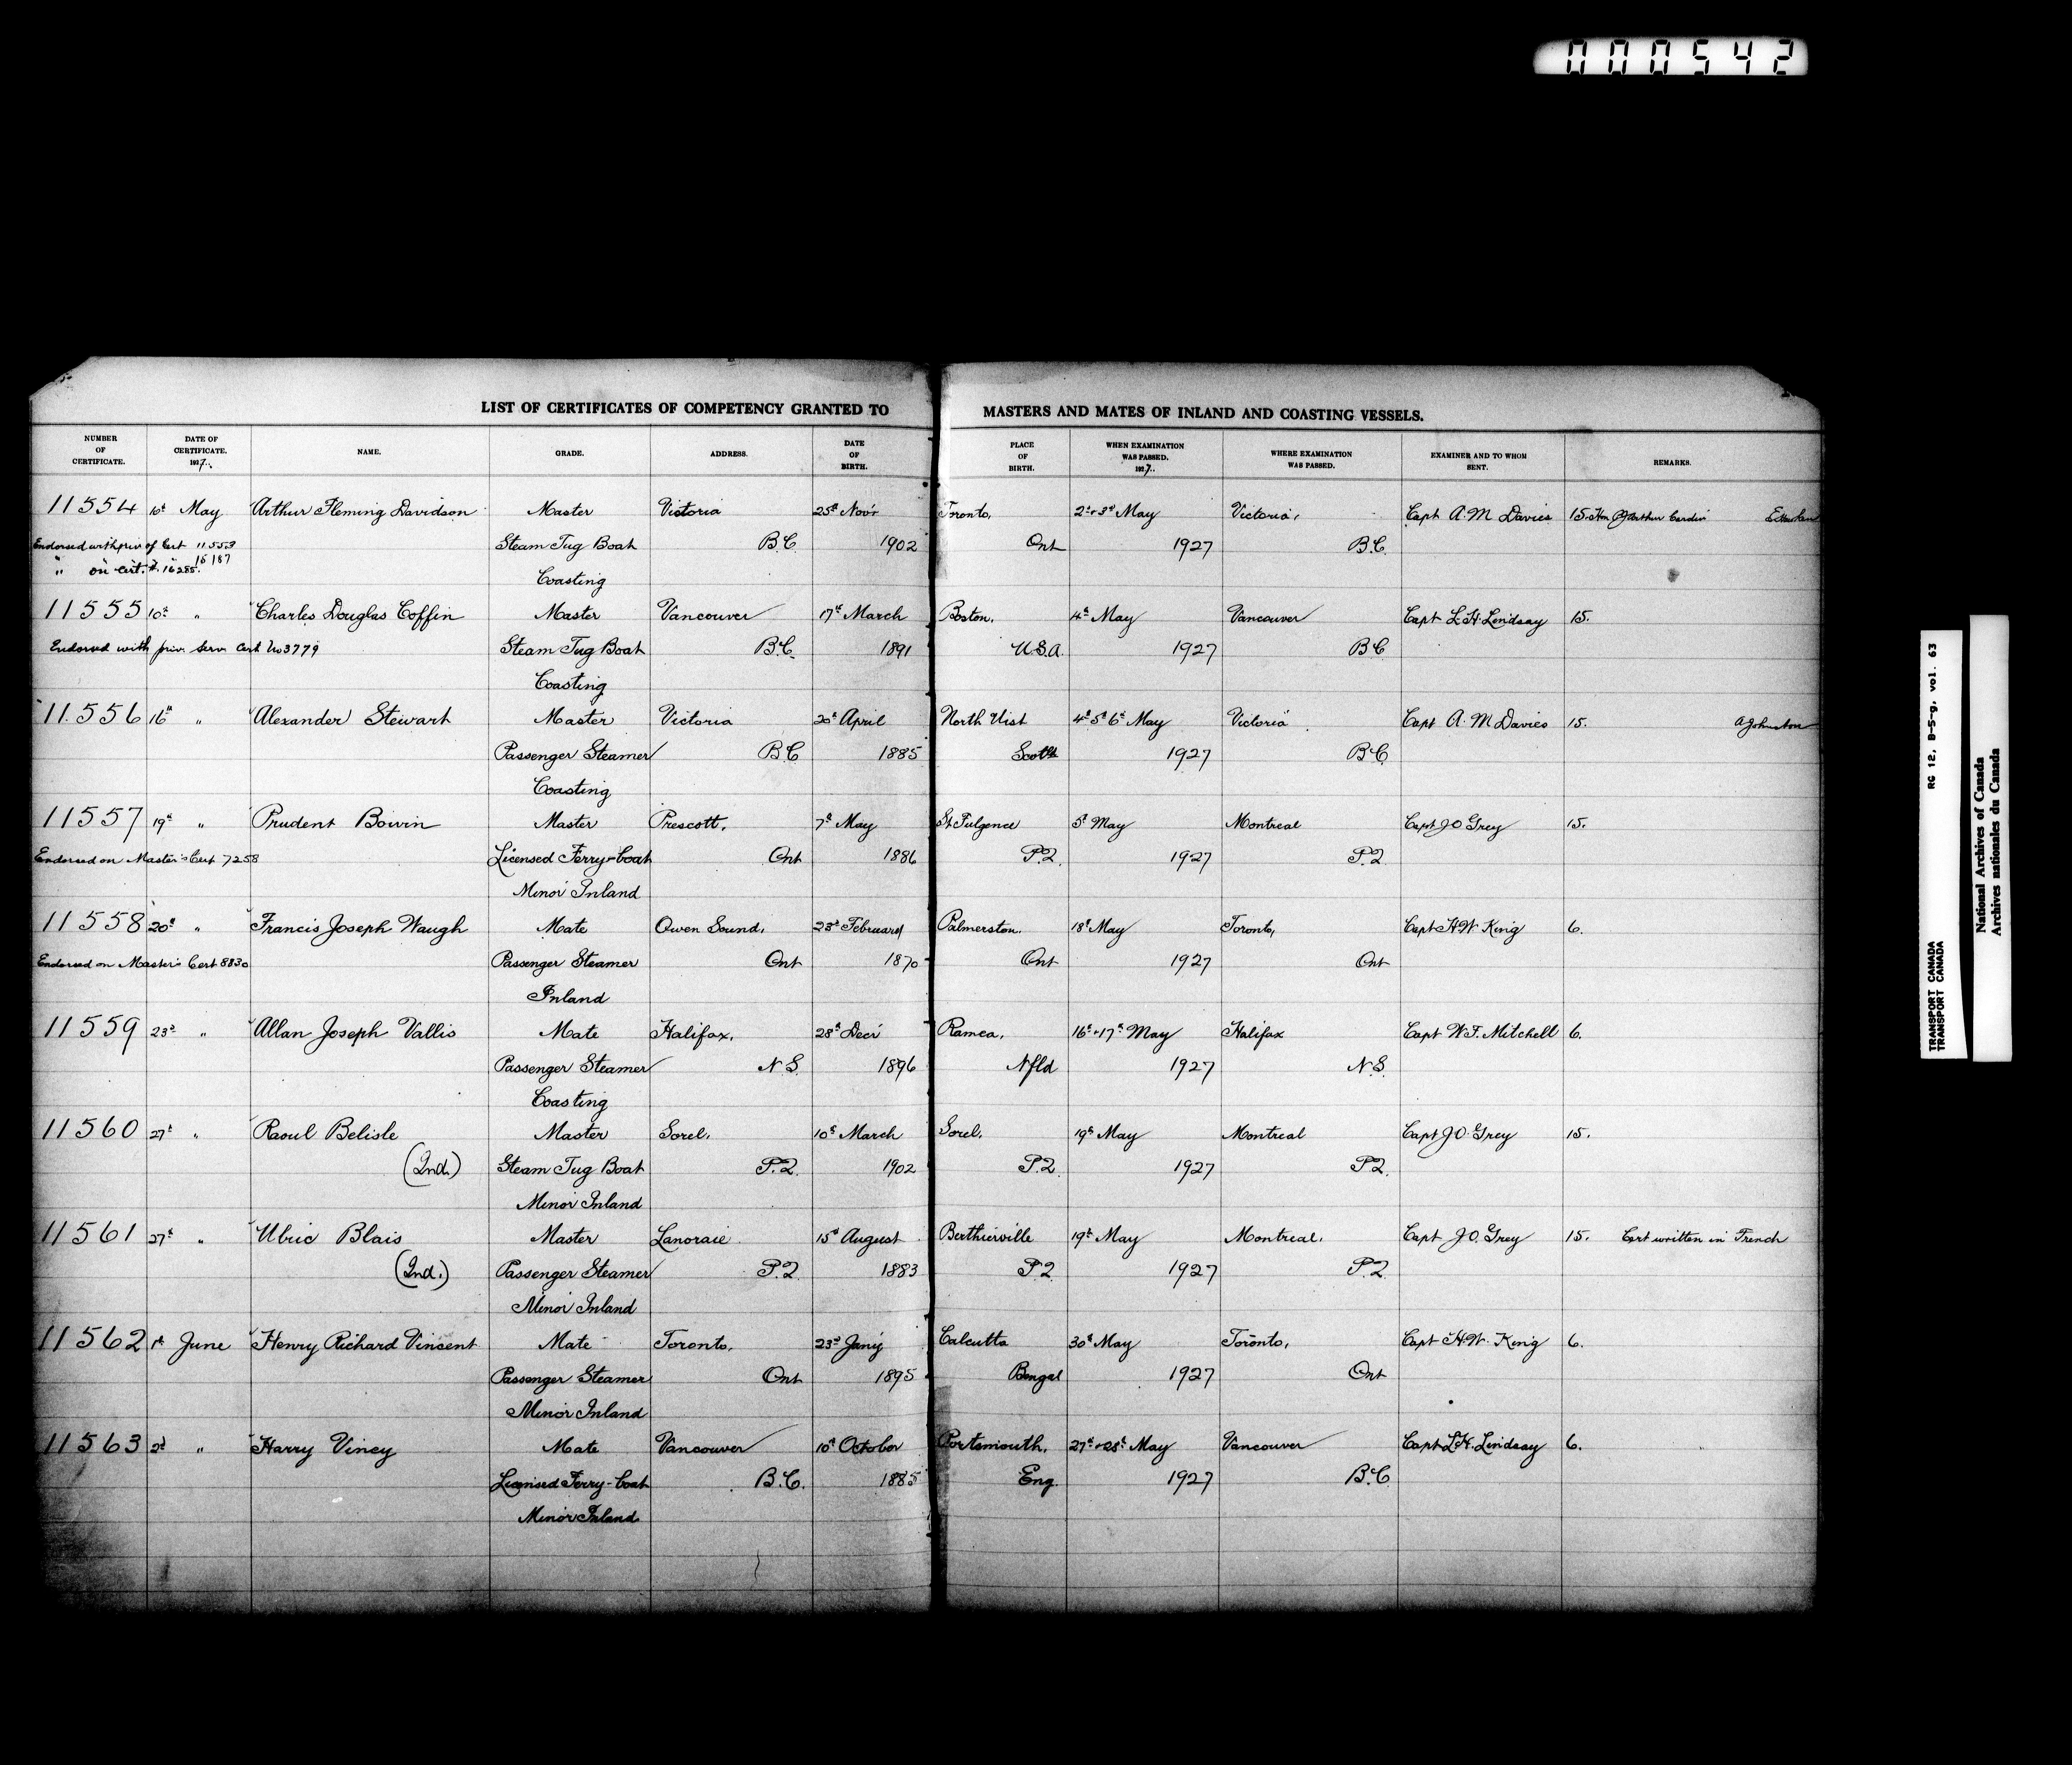 000542
LIST OF CERTIFICATES OF COMPETENCY GRANTED TO MASTERS AND MATES OF INLAND AND COASTING VESSELS.
NUMBER OF CERTIFICATE. DATE OF CERTIFICATE. 1927. NAME. GRADE. ADDRESS. DATE OF BIRTH. PLACE OF BIRTH. WHEN EXAMINATION WAS PASSED. 1927. WHERE EXAMINATION WAS PASSED. EXAMINER AND TO WHOM SENT. REMARKS.
11554 10th May Arthur Fleming Davidson Master Victoria 25th Nov'r Toronto, 2nd + 3rd May Victoria, Capt A. M Davies 15. Hon P J Arthur Cardin
Endorsed with priv of Cert 11553 Steam Tug Boat B.C. 1902 Ont 1927 B.C.
16187
" on Cert. # 16285. Coasting
11555 10th " Charles Douglas Coffin Master Vancouver 17th March Boston, 4th May Vancouver Capt L. H. Lindsay 15.
Endorsed with priv. Serv. Cert No 3779 Steam Tug Boat B.C. 1891 U.S.A. 1927 B.C
Coasting
11556 16th " Alexander Stewart Master Victoria 20th April North Uist 4th 5th 6th May Victoria Capt A. M Davies 15. A Johnston
Passenger Steamer B.C 1885 Scotld 1927 B.C
Coasting
11557 19th " Prudent Boivin Master Prescott, 7th May St Fulgence 5th May Montreal Capt J O Grey 15.
Endorsed on Master's Cert 7258 Licensed Ferry-boat Ont 1886 P.Q. 1927 P.Q
Minor Inland
11558 20th " Francis Joseph Waugh Mate Owen Sound, 23rd February Palmerston, 18th May Toronto, Capt H W King 6.
Endorsed on Master's Cert 8830 Passenger Steamer Ont 1870 Ont 1927 Ont
Inland
11559 23rd " Allan Joseph Vallis Mate Halifax, 28th Decr Ramea, 16th + 17th May Halifax Capt W. F. Mitchell 6.
Passenger Steamer N.S. 1896 Nfld 1927 N.S.
Coasting
11560 27th " Raoul Belisle Master Sorel, 10th March Sorel, 19th May Montreal Capt J O. Grey 15.
(Ind.) Steam Tug Boat P.Q. 1902 P.Q. 1927 P.Q.
Minor Inland
11561 27th " Ulric Blais Master Lanoraie 15th August Berthierville 19th May Montreal. Capt J. O. Grey 15. Cert written in French
(Ind.) Passenger Steamer P.Q. 1883 P.Q 1927 P.Q.
Minor Inland
11562 1st June Henry Richard Vincent Mate Toronto, 23rd Jany Calcutta 30th May Toronto, Capt H.W. King 6.
Passenger Steamer Ont 1895 Bengal 1927 Ont
Minor Inland
11563 2d " Harry Viney Mate Vancouver 10th October Portsmouth, 27th + 28th May Vancouver Capt L H. Lindsay 6.
Licensed Ferry-boat B.C. 1885 Eng. 1927 B.C.
Minor Inland
TRANSPORT CANADA RG 12, B-5-g, vol. 63
TRANSPORT CANADA
National Archives of Canada
Archives nationales du Canada